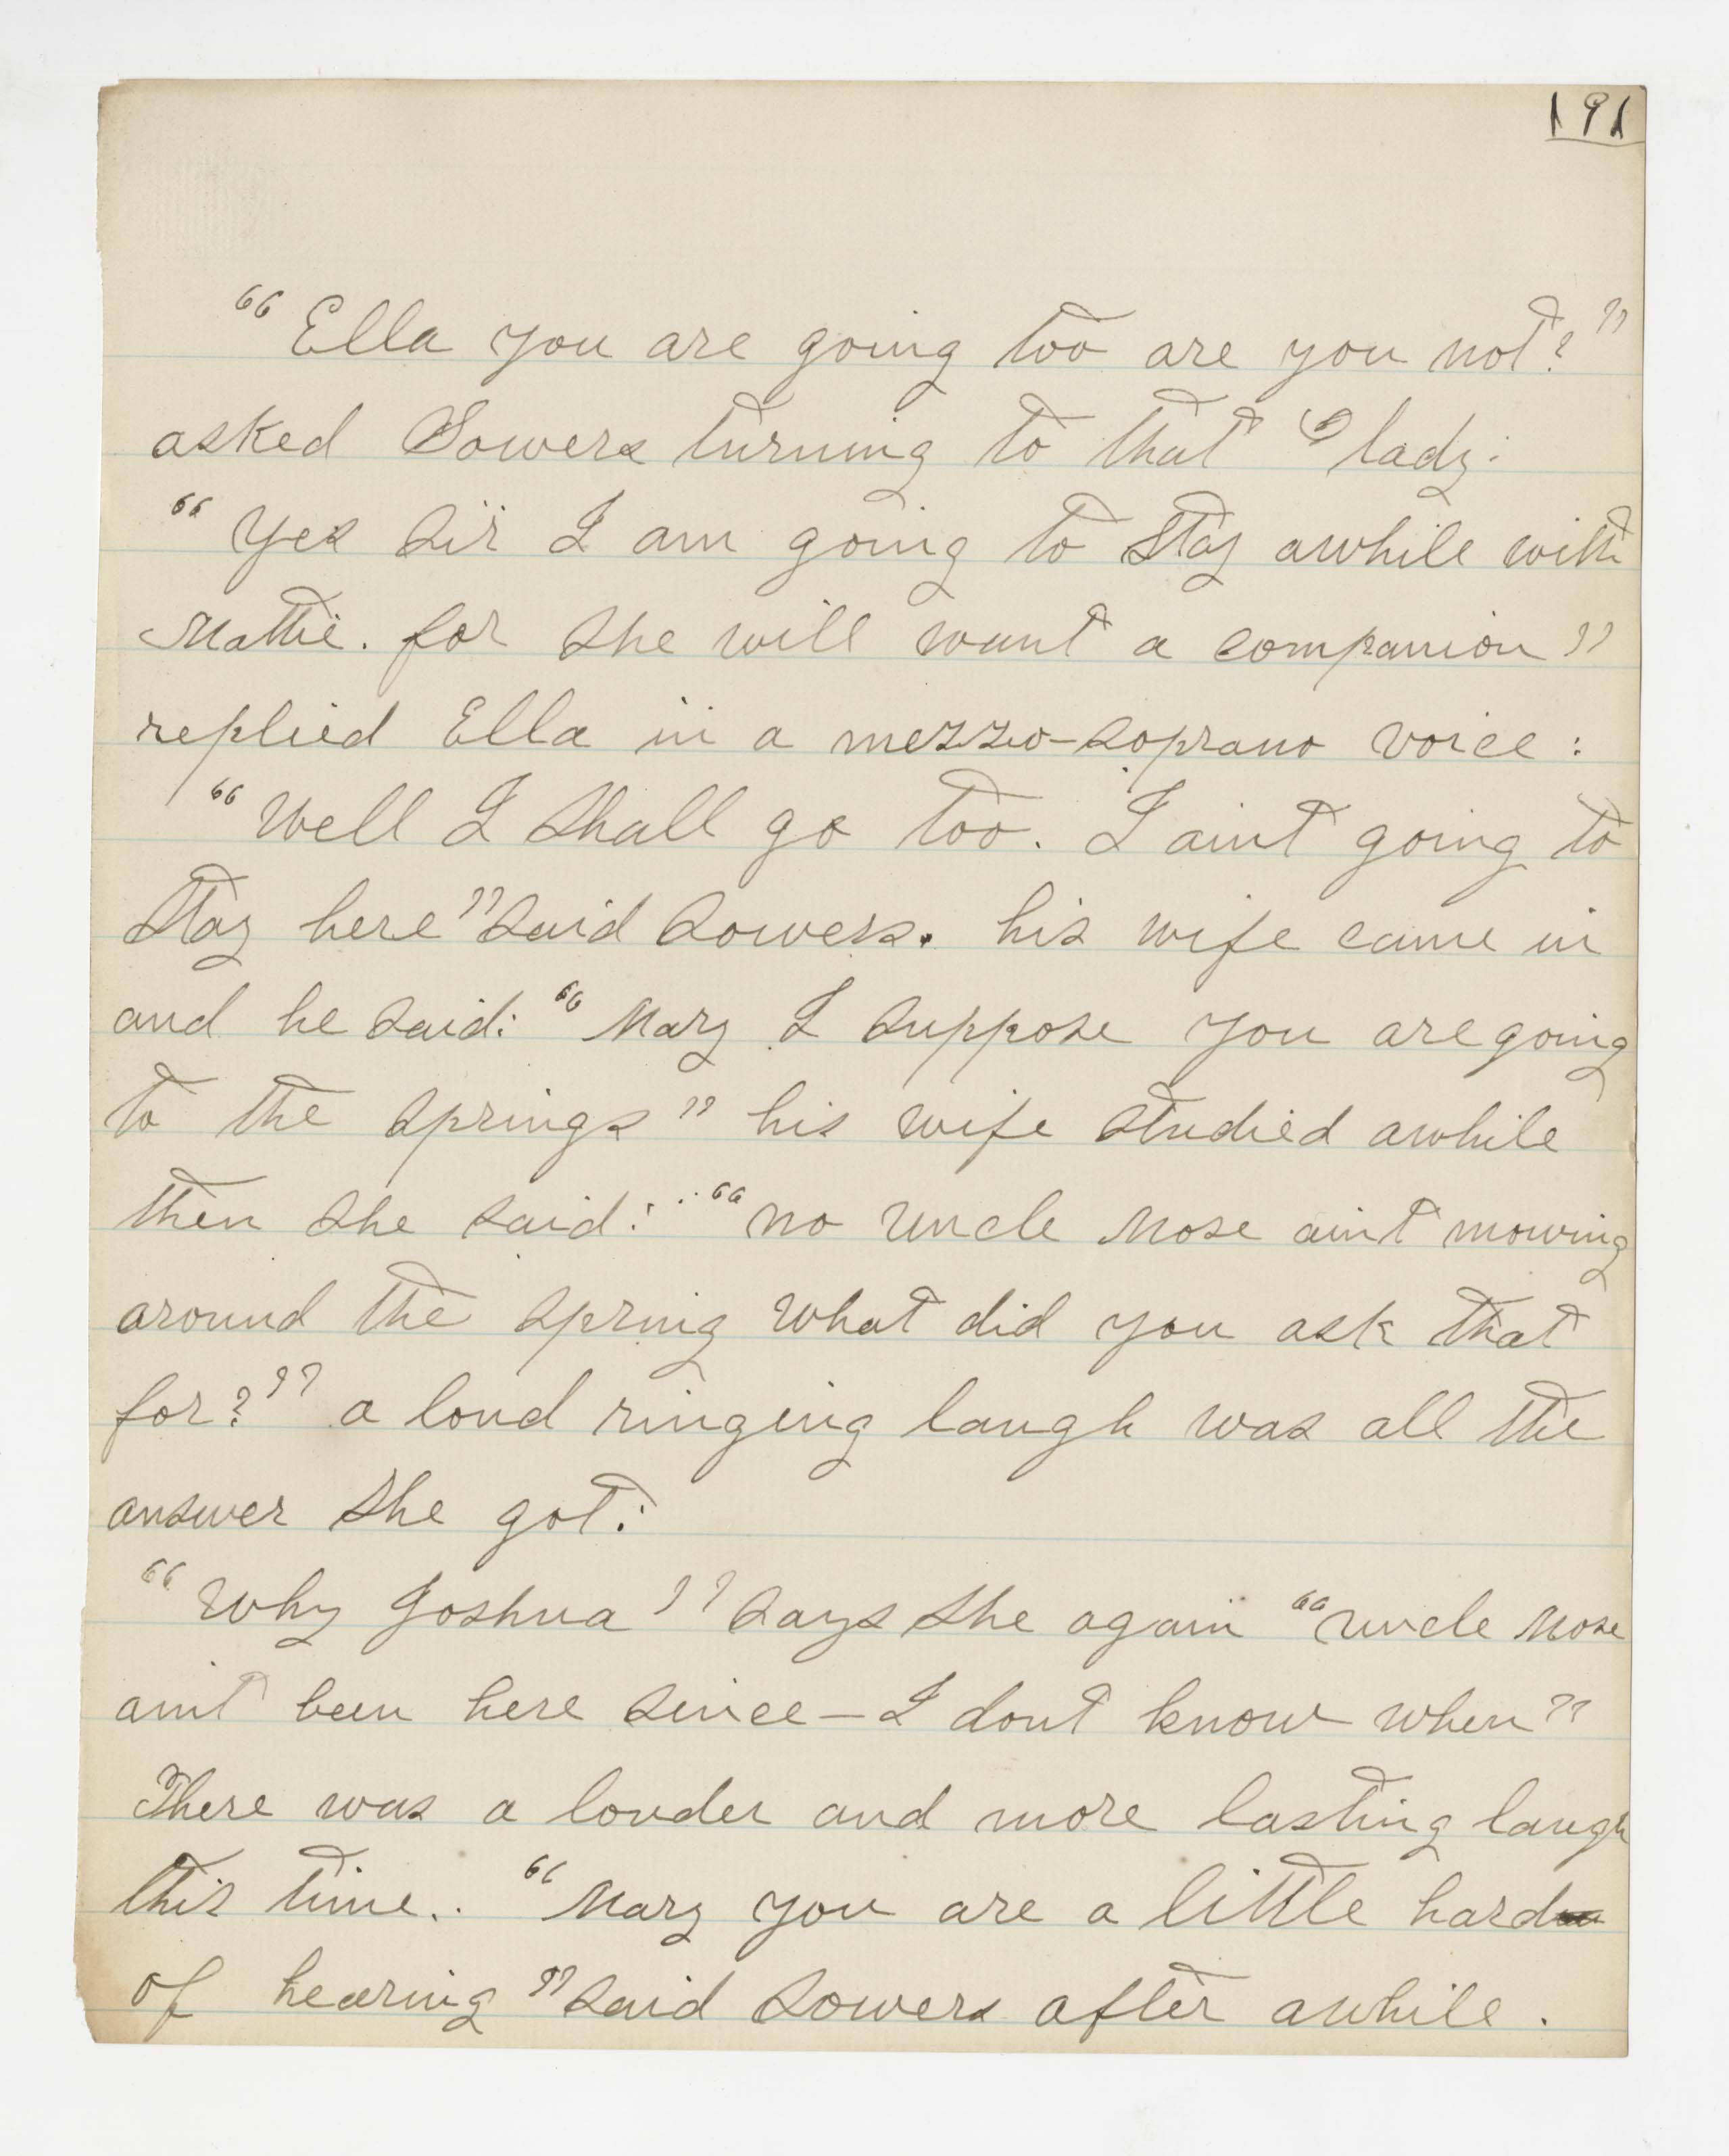 191
"Ella you are going too are you not?"
asked Sowers turning to that lady.
"Yes sir I am going to stay awhile with
Mattie. for she will want a companion"
replied Ella in a mezzo-soprano voice:
"Well I shall go too. I aint going to
stay here" said Sowers. his wife came in
and he said: "Mary I suppose you are going
to the springs" his wife studied awhile
then she said: "no Uncle Mose aint mowing
around the spring what did you ask that
for?" a loud ringing laugh was all the
answer she got:
"Why Joshua" says she again "Uncle Mose
aint been here since—I dont know when"
There was a louder and more lasting laugh
this time.. "Mary you are a little hard
of hearing" said Sowers after awhile.